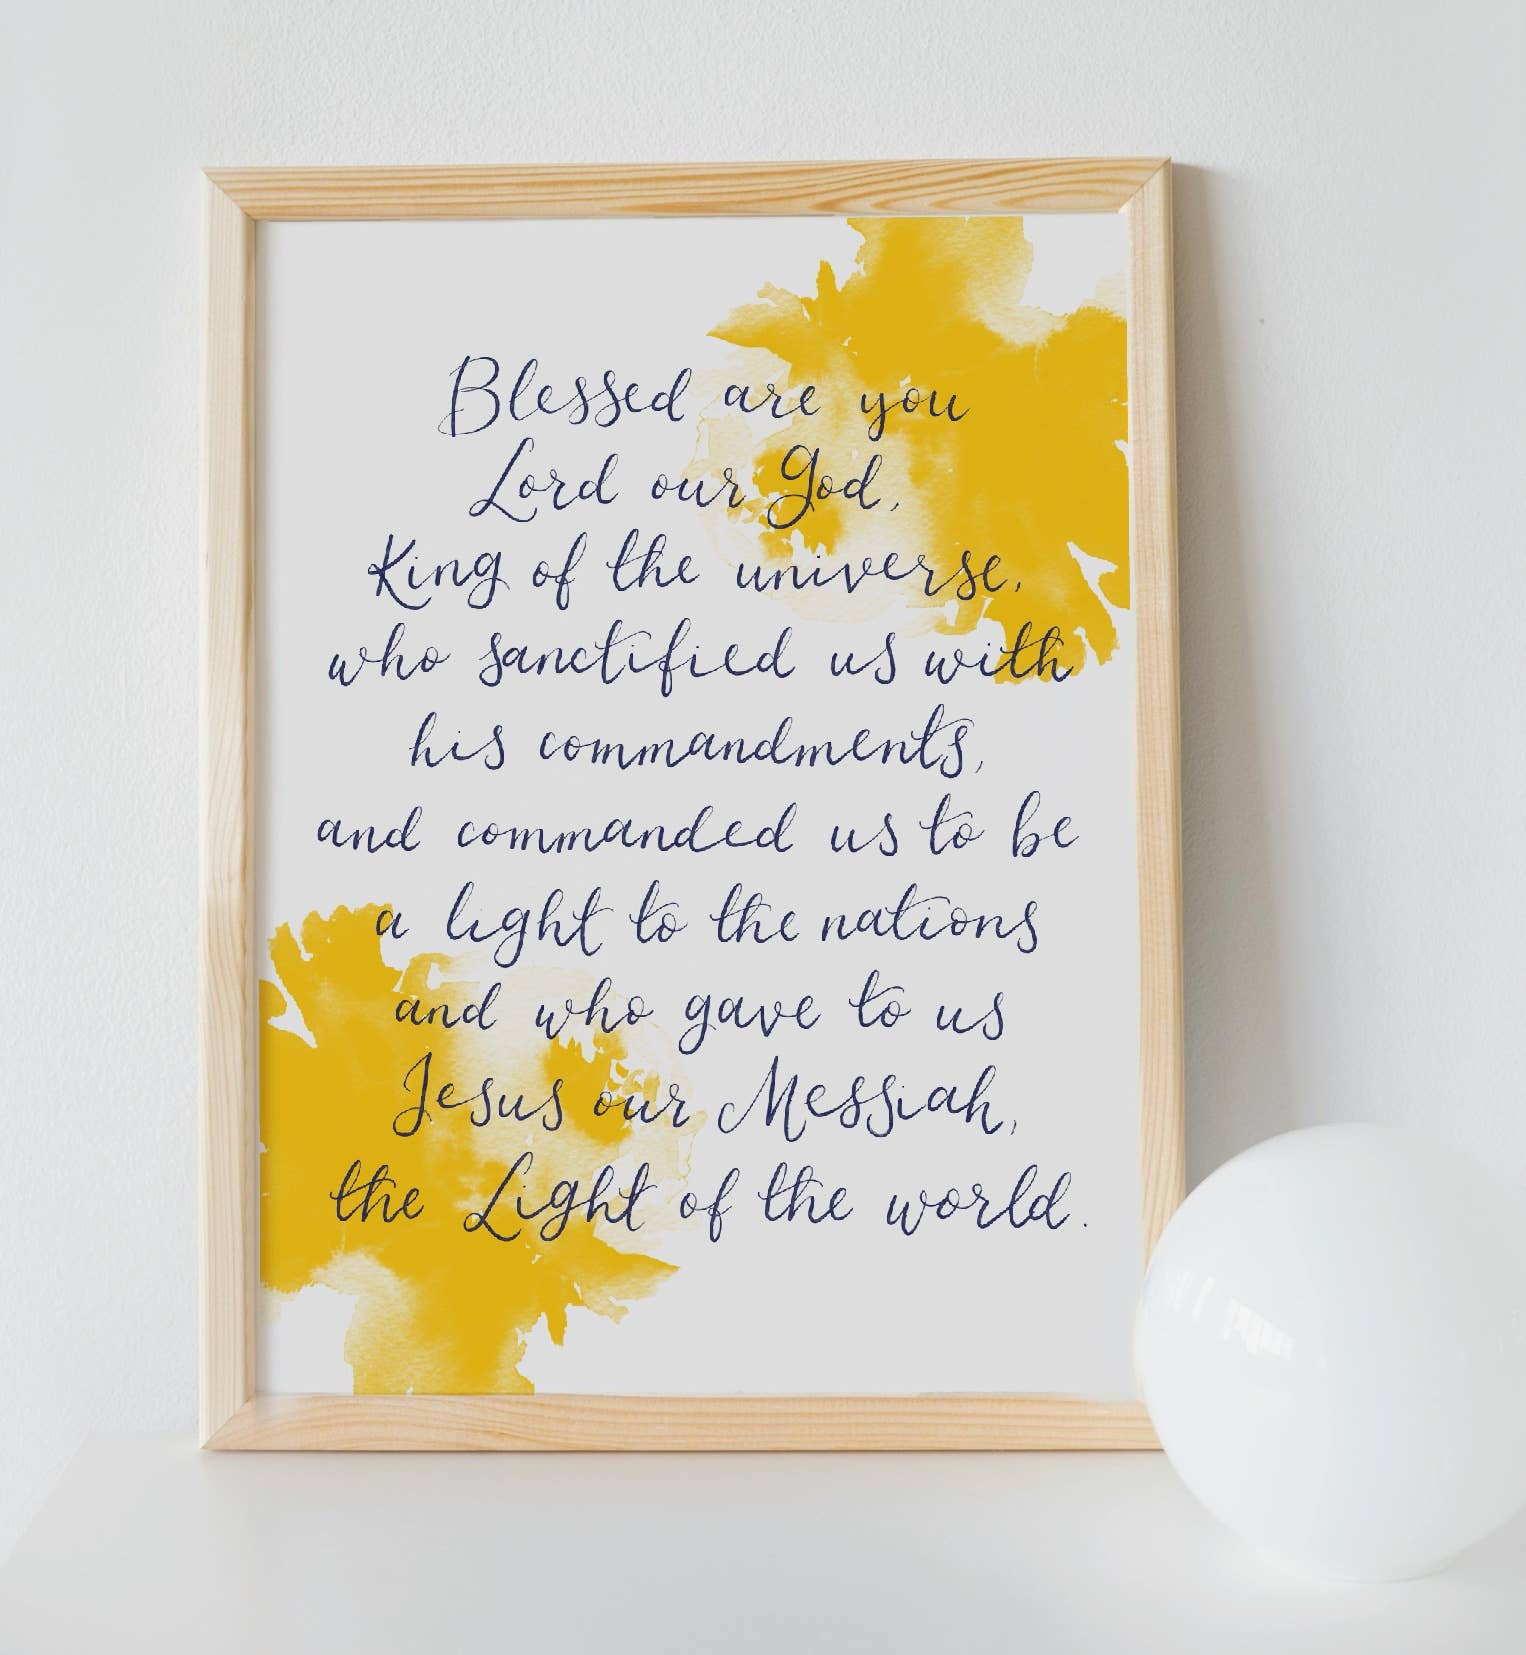 Blessed are you
Lord our God,
King of the universe,
who sanctified us with
his commandments,
and commanded us to be
a light to the nations
and who gave to us
Jesus our Messiah,
the Light of the world.